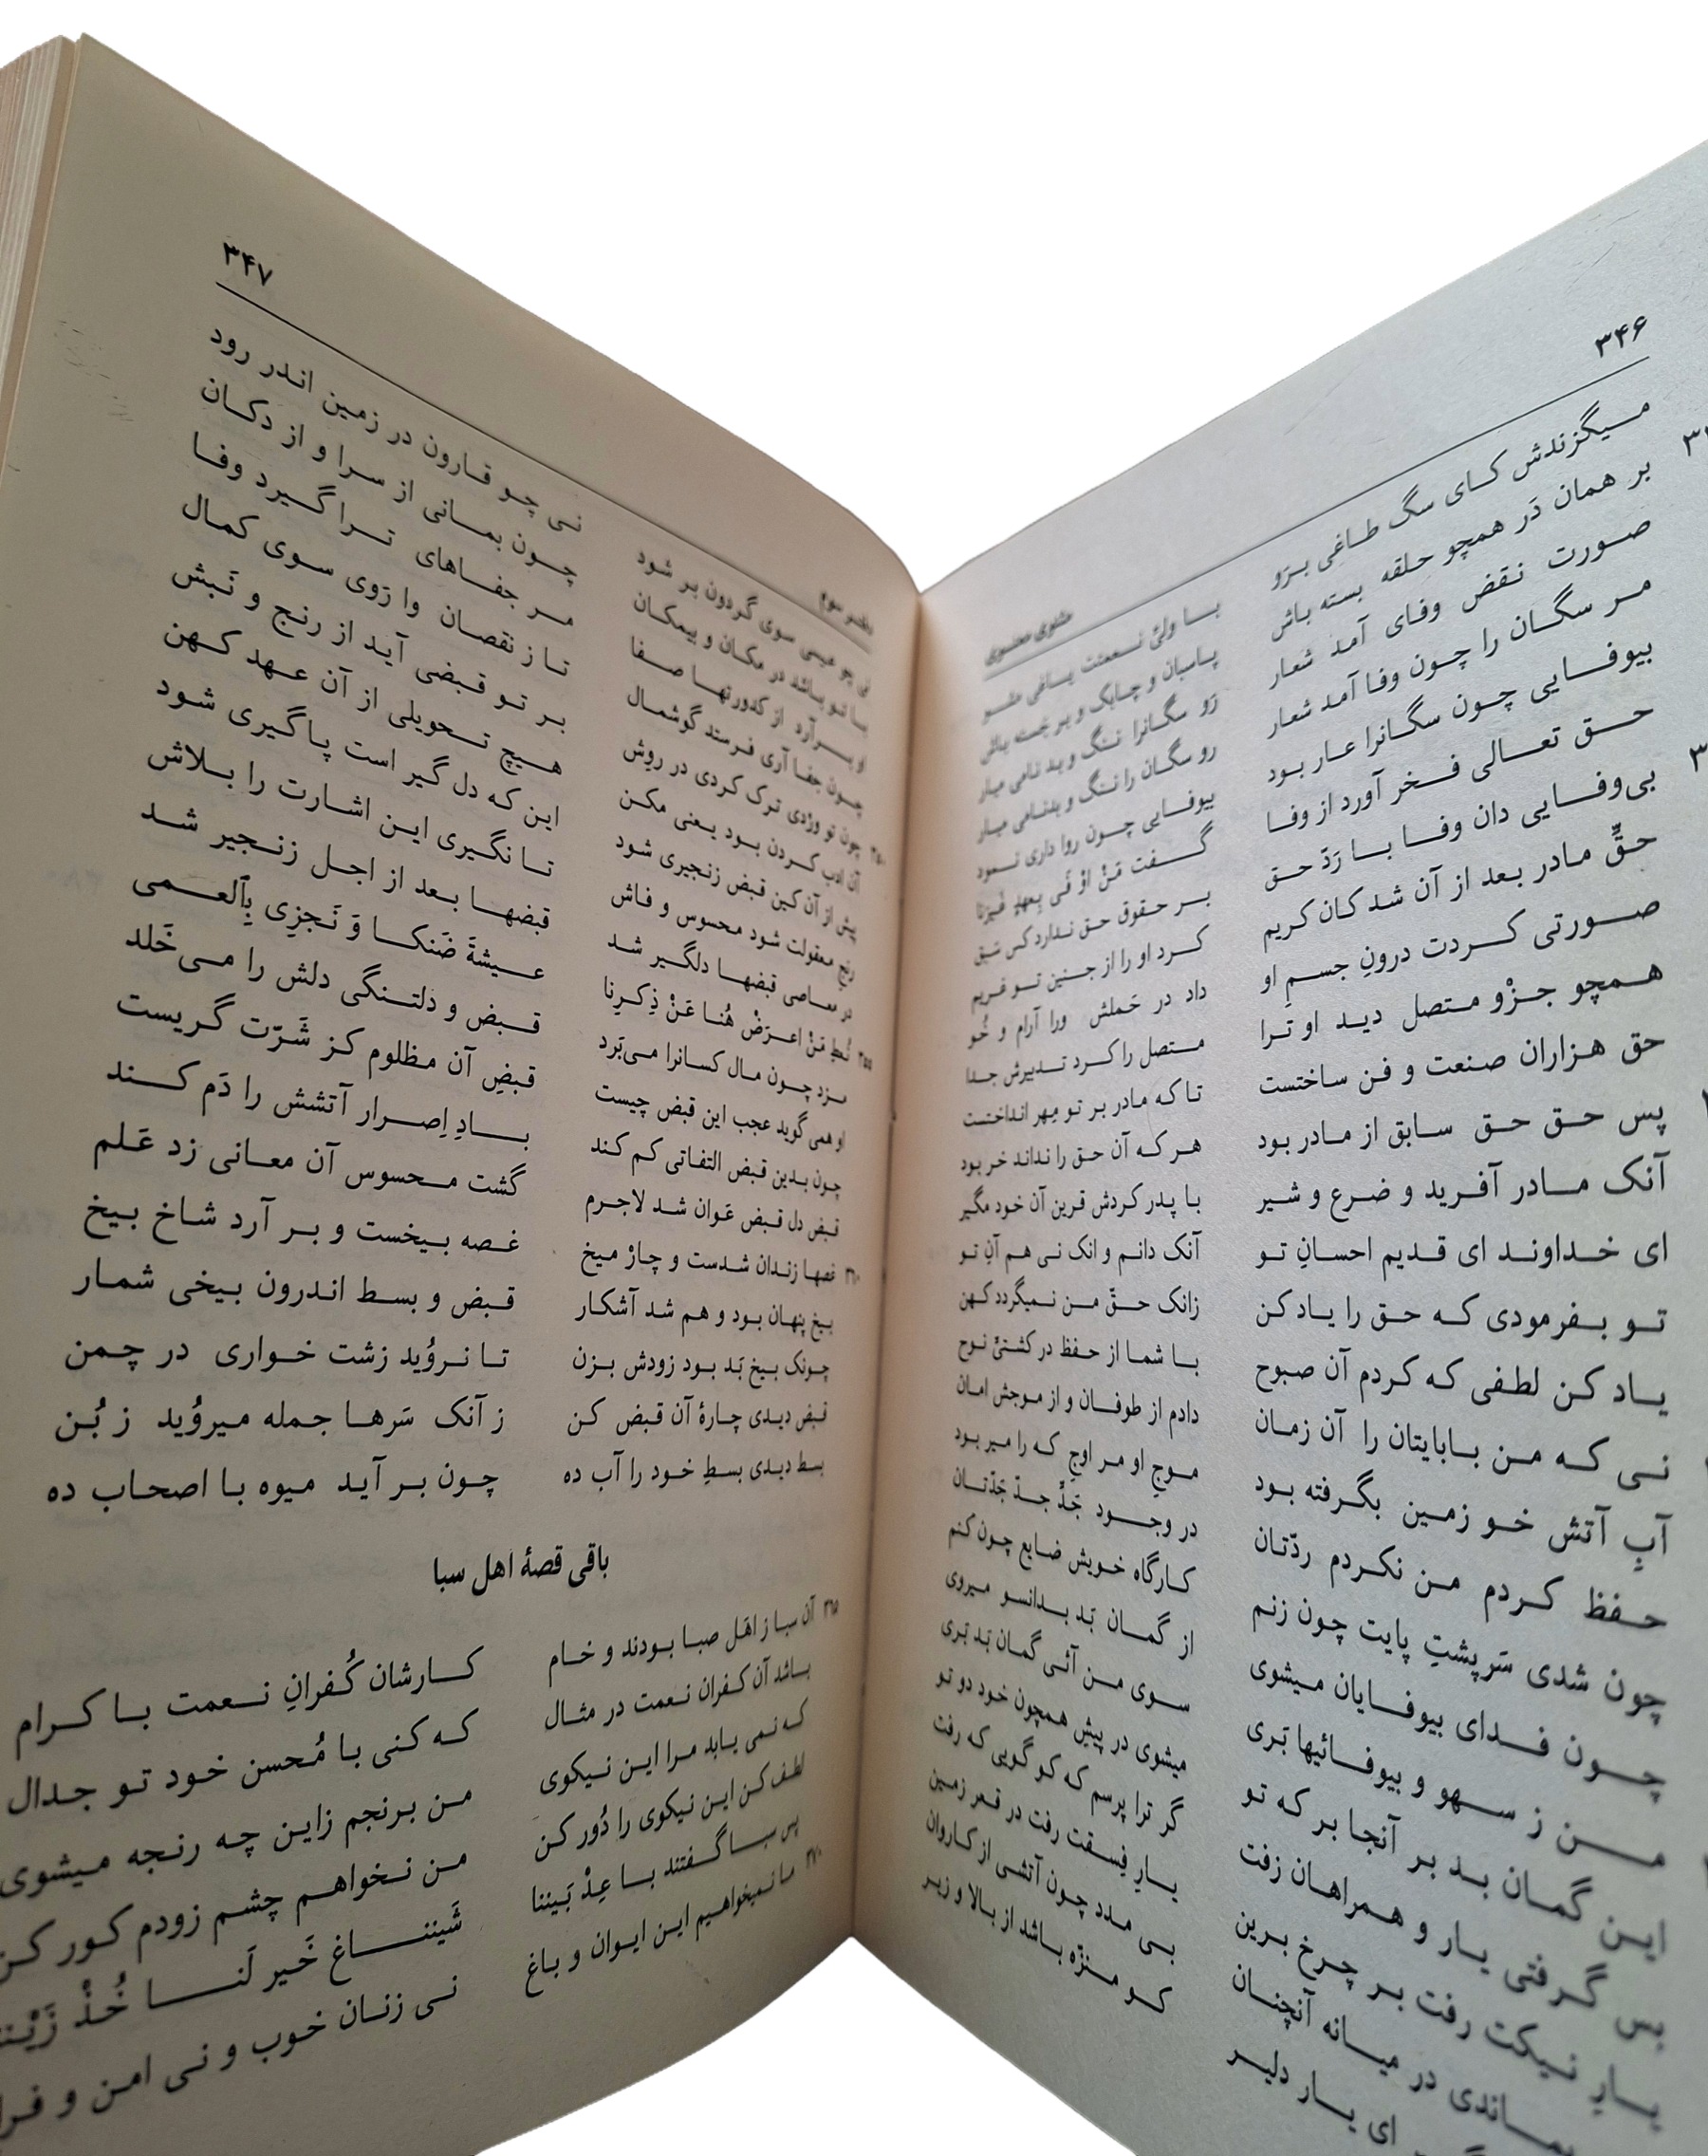 ۳۴۶
مثنوی معنوی
میگزندش کای سگ طاغی برَو با ولیّ نعمتت یاغی مشو
بر همان دَر همچو حلقه بسته باش پاسبان و چابک و بر جسته باش
صورت نقض وفای آمد شعار رَو سگانرا ننگ و بد نامی میار
مر سگان را چون وفا آمد شعار رو سگان را ننگ و بدنامی میار
بیوفایی چون سگانرا عار بود بیوفایی چون روا داری نمود
حق تعالی فخر آورد از وفا گفت مَنْ اوْ فَی بِعهدٍ غَیرَنا
بی‌وفایی دان وفا با رَدّ حق بر حقوق حق ندارد کس سَبق
حقِّ مادر بعد از آن شد کان کریم کرد او را از جنین تو غریم
صورتی کردت درونِ جسمِ او داد در حَملش ورا آرام و خُو
همچو جزْو متصل دید او ترا متصل را کرد تدبیرش جدا
حق هزاران صنعت و فن ساختست تا که مادر بر تو مِهر انداختست
پس حق حق سابق از مادر بود هر که آن حق را نداند خر بود
آنک مادر آفرید و ضرع و شیر با پدر کردش قرین آن خود مگیر
ای خداوند ای قدیم احسانِ تو آنک دانم و انک نی هم آنِ تو
تو بفرمودی که حق را یاد کن زانک حقّ من نمیگردد کهن
یاد کن لطفی که کردم آن صبوح با شما از حفظ در کشتیّ نوح
نی که من بابایتان را آن زمان دادم از طوفان و از موجش امان
آبِ آتش خو زمین بگرفته بود موجِ او مر اوجِ که را میر بود
حفظ کردم من نکردم ردّتان در وجود جَدِّ جدّ جَدّتان
چون شدی سَرپشتِ پایت چون زنم کارگاه خویش ضایع چون کنم
چون فدای بیوفایان میشوی از گمان بَد بدانسو میروی
من ز سهو و بیوفائیها بَری سوی من آئی گمان بَد بَری
این گمان بد بر آنجا بر که تو میشوی در پیشِ همچون خود دو تو
بس گرفتی یار و همراهان زفت گر ترا پرسم که کو گویی که رفت
یارِ نیکت رفت بر چرخ برین یارِ فِسقت رفت در قعر زمین
بماندی در میانه آنچنان بی مدد چون آتشی از کاروان
ای یار دلیر کو منزّه باشد از بالا و زیر
۳۴۷
دفتر سوم
نی چو عیسی سوی گردون بر شود نی چو قارون در زمین اندر رود
با تو باشد در مکان و بیمکان چون بمانی از سرا و از دکان
او برآرد از کدورتها صفا مر جفاهای ترا گیرد وفا
چون جفا آری فرستد گوشمال تا ز نقصان وا رَوی سوی کمال
چون تو وِرْدی ترک کردی در روِش بر تو قبضی آید از رنج و تَبش
آن ادب کردن بود یعنی مکن هیچ تحویلی از آن عهد کهن
پیش از آن کین قبض زنجیری شود این که دل گیر است پاگیری شود
رنجِ معقولت شود محسوس و فاش تا نگیری این اشارت را بلاش
در معاصی قبضها دلگیر شد قبضها بعد از اجل زنجیر شد
نُعطِ مَنْ اعرَضْ هُنا عَنْ ذِکرِنا عیشةَ ضَنکا وَ نَجزِی بِٱلعمی
دزد چون مال کسانرا می‌بَرد قبض و دلتنگی دلش را می‌خَلد
او همی گوید عجب این قبض چیست قبضِ آن مظلوم کز شَرّت گریست
چون بدین قبض التفاتی کم کند بادِ اِصرار آتشش را دَم کند
قبض دل قبض عَوان شد لاجرم گشت محسوس آن معانی زد عَلم
زندان شدست و چارْ میخ غصه بیخست و بر آرد شاخ بیخ
بیخ پنهان بود و هم شد آشکار قبض و بسط اندرون بیخی شمار
چونک بیخ بَد بود زودش بزن تا نروُید زشت خواری در چمن
قبض دیدی چارهٔ آن قبض کن ز آنک سَرها جمله میروُید ز بُن
بسط دیدی بسطِ خود را آب ده چون بر آید میوه با اصحاب ده
باقی قصهٔ اهل سبا
آن سبا ز اهَل صبا بودند و خام کارشان کُفرانِ نعمت با کرام
باشد آن کفران نعمت در مثال که کنی با مُحسن خود تو جدال
که نمی یابد مرا این نیکوی من برنجم زاین چه رنجه میشوی
لطف کن این نیکوی را دُور کن من نخواهم چشم زودم کور کن
پس سبا گفتند با عِدْ بَیننا شَیننا غ خَیر لَنا خُذْ زَیْننا
ما نمیخواهیم این ایوان و باغ نی زنان خوب و نی امن و